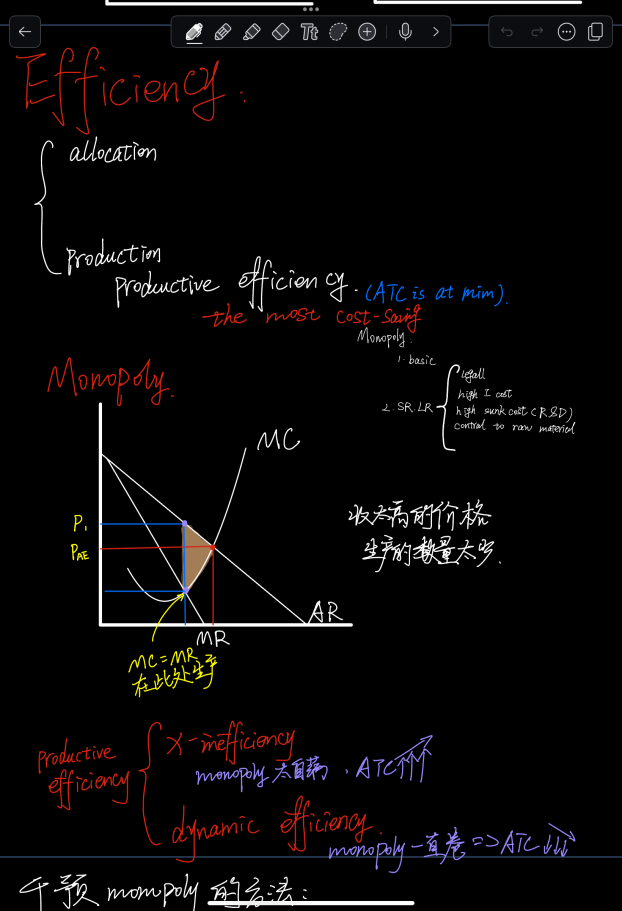 Tt
Efficiency.
allocation
production
productive efficiency. (ATC is at mim).
the most cost-saving
Monopoly.
1. basic
2. SR. LR
legall
high I cost
high sunk cost (R&D)
control to raw material
Monopoly.
MC
P₁
PAE
AR
MR
MC = MR
在此处生产
收太高的价格
生产的数量太少.
productive
efficiency
X-inefficiency
monopoly 太自满, ATC↑↑↑
dynamic efficiency.
monopoly 一直卷 => ATC↓↓↓
干预 monopoly 的方法: